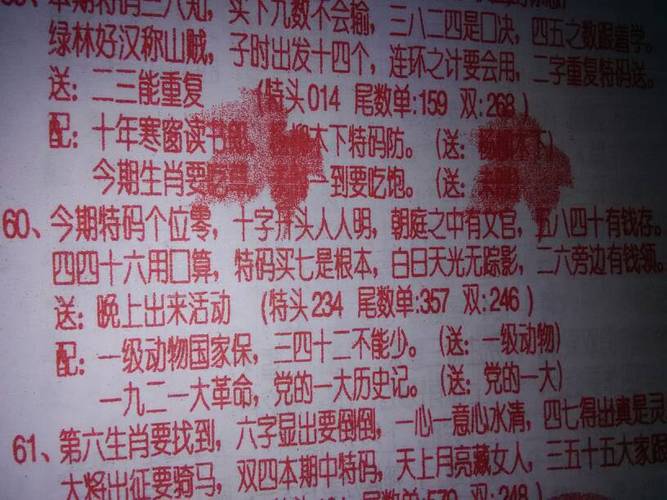 本期特码三八知，买下九数不会输，三八二四是口决，四五之数跟着学。
绿林好汉称山贼，子时出发十四个，连环之计要会用，二字重复特码送。
送：二三能重复 （特头014 尾数单:159 双:268）
配：十年寒窗读书 木下特码防。（送：
今期生肖要 一到要吃饱。（送：
60、今期特码个位零，十字开头人人明，朝庭之中有文官，五八四十有钱存。
四四十六用口算，特码买七是根本，白日天光无踪影，二六旁边有钱领。
送：晚上出来活动 （特头234 尾数单:357 双:246）
配：一级动物国家保，三四十二不能少。（送：一级动物）
一九二一大革命，党的一大历史记。（送：党的一大）
61、第六生肖要找到，六字显出要倒倒，一心一意心水清，四七得出真是灵
大将出征要骑马，双四本期中特码，天上月亮藏女人，三五十五大家